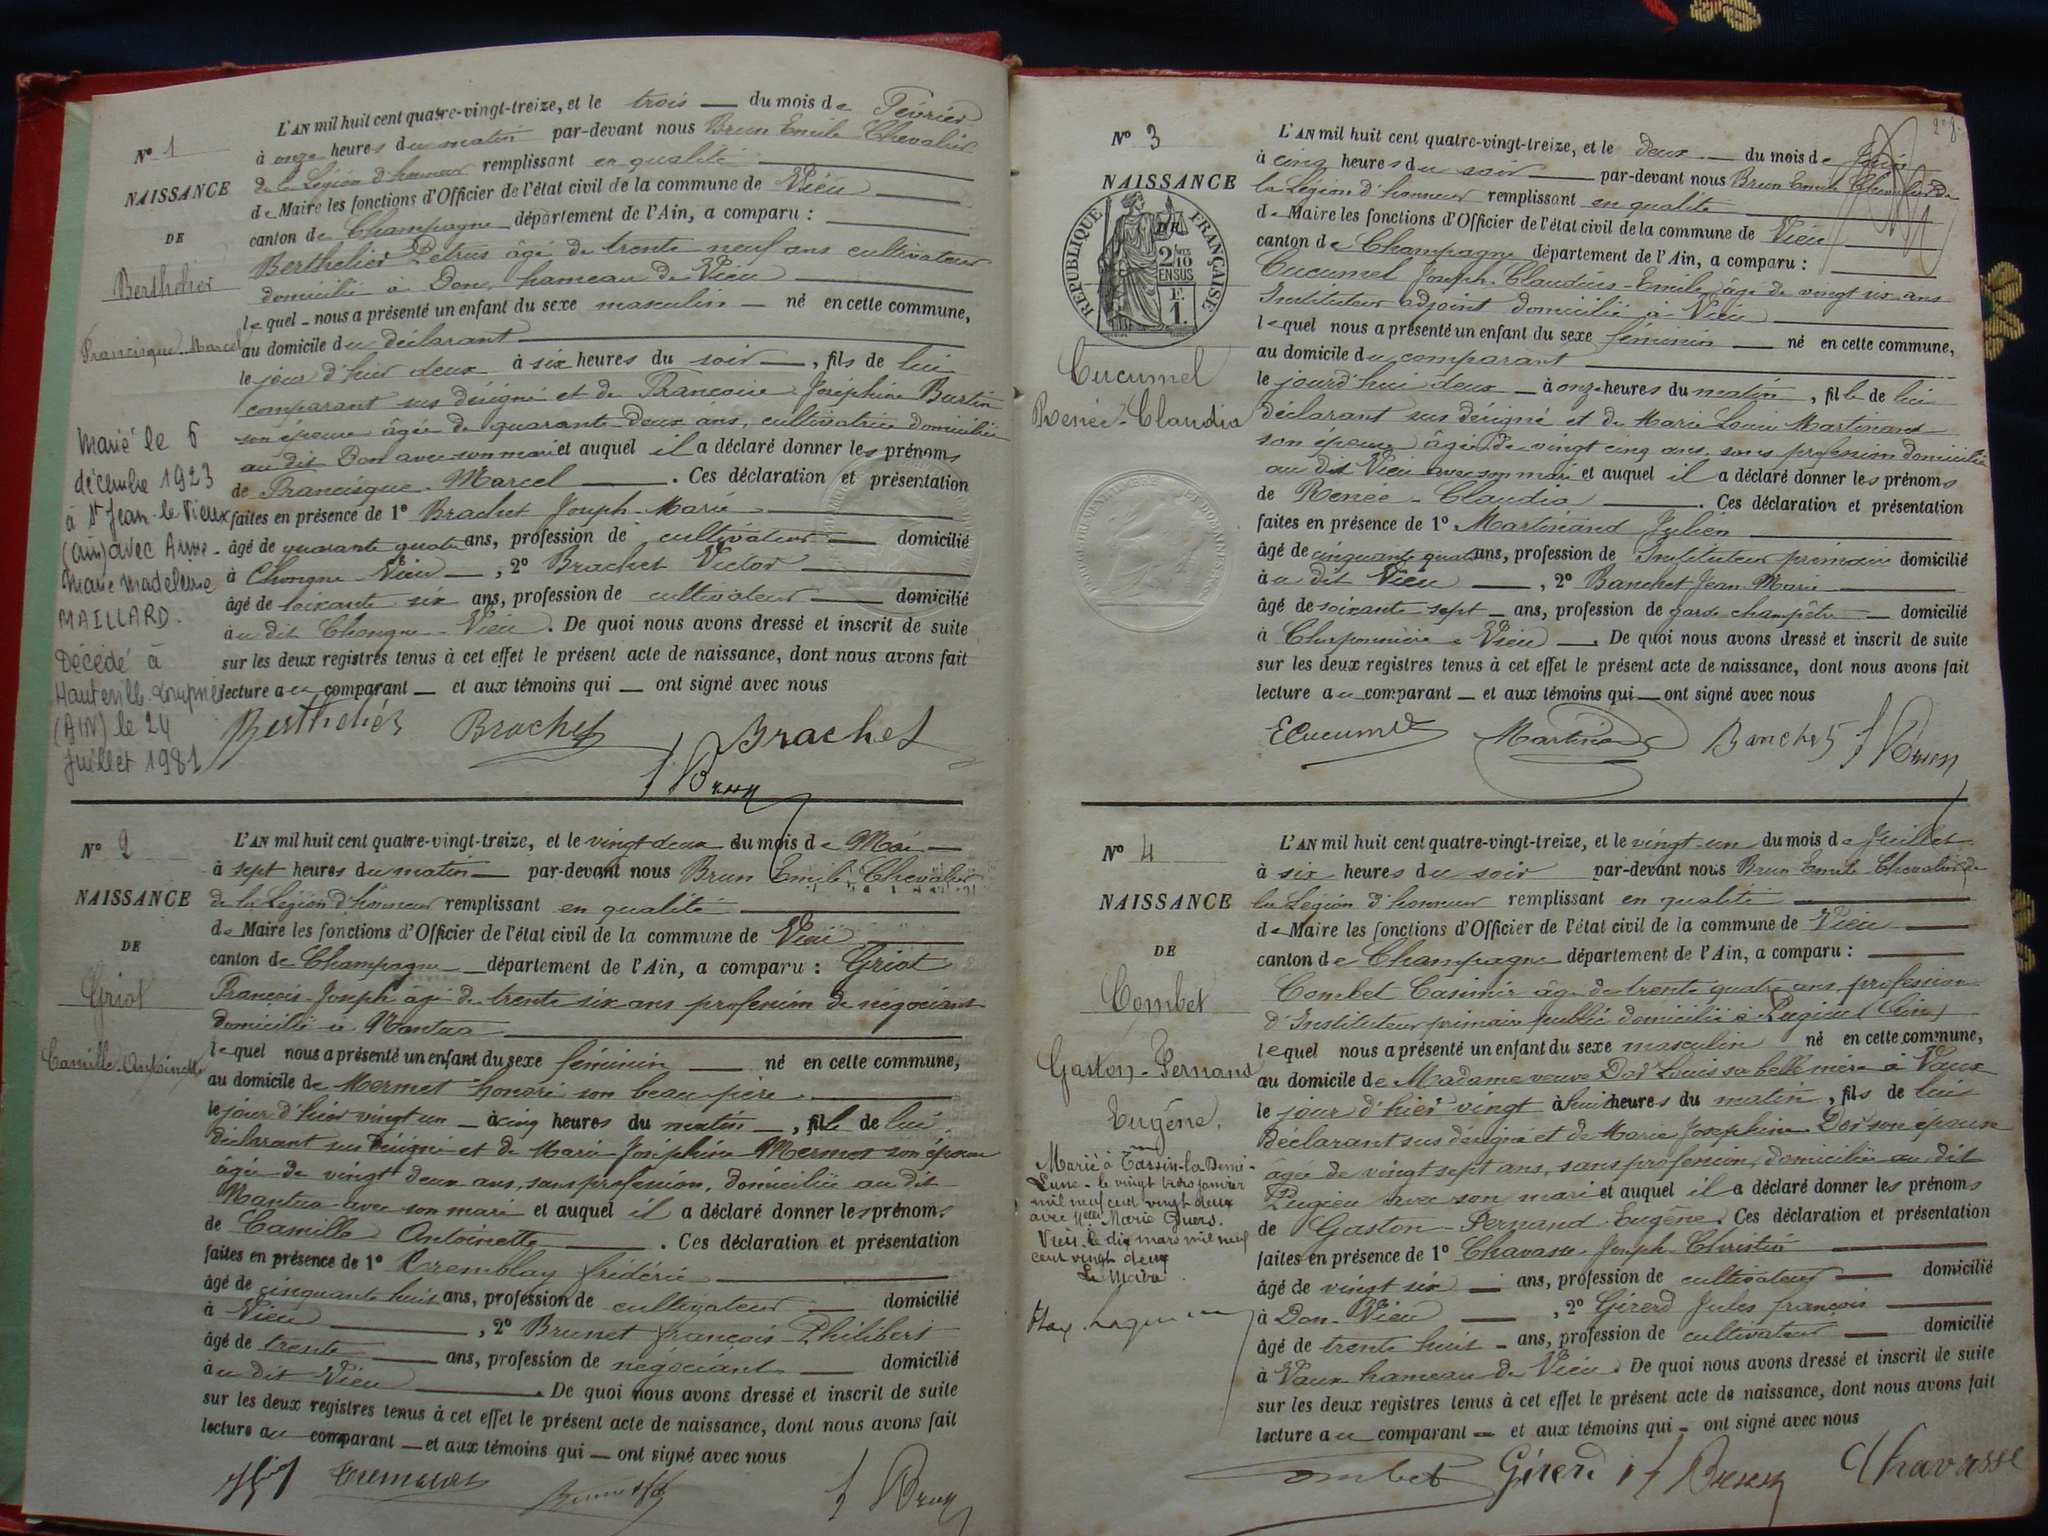 N° 1
NAISSANCE
DE
Berthelier
Francisque-Marcel
Marié le 6
décembre 1923
à St Jean-le-Vieux
(Ain) avec Anne-
Marie Madeleine
MAILLARD.
Décédé à
Hauteville-Lompnes
(AIN) le 24
juillet 1981
L'AN mil huit cent quatre-vingt-treize, et le trois du mois de Février
à onze heures du matin par-devant nous Brun Emile Chevalier
de la Légion d'honneur remplissant en qualité
de Maire les fonctions d'Officier de l'état civil de la commune de Vieu
canton de Champagne département de l'Ain, a comparu :
Berthelier Petrus âgé de trente neuf ans cultivateur
domicilié à Don, hameau de Vieu
lequel nous a présenté un enfant du sexe masculin né en cette commune,
au domicile du déclarant
le jour d'hier deux à six heures du soir, fils de lui
comparant sus désigné et de Françoise Joséphine Burtin
son épouse âgée de quarante deux ans, cultivatrice domiciliée
au dit Don avec son mari et auquel il a déclaré donner les prénoms
de Francisque-Marcel. Ces déclaration et présentation
faites en présence de 1° Brachet Joseph-Marie
âgé de quarante quatre ans, profession de cultivateur domicilié
à Chongne-Vieu, 2° Brachet Victor
âgé de soixante six ans, profession de cultivateur domicilié
à u dit Chongne-Vieu. De quoi nous avons dressé et inscrit de suite
sur les deux registres tenus à cet effet le présent acte de naissance, dont nous avons fait
lecture au comparant et aux témoins qui ont signé avec nous
Berthelier Brachet Brachet
Brun
N° 2
NAISSANCE
DE
Griot
Camille-Antoinette
L'AN mil huit cent quatre-vingt-treize, et le vingt deux du mois de Mai
à sept heures du matin par-devant nous Brun Emile Chevalier
de la Légion d'honneur remplissant en qualité
de Maire les fonctions d'Officier de l'état civil de la commune de Vieu
canton de Champagne département de l'Ain, a comparu : Griot
François-Joseph âgé de trente six ans profession de négociant
domicilié à Nantua
lequel nous a présenté un enfant du sexe féminin né en cette commune,
au domicile de Mermet honoré son beau père
le jour d'hier vingt un à cinq heures du matin, fille de lui
déclarant sus désigné et de Marie Joséphine Mermet son épouse
âgée de vingt deux ans, sans profession, domiciliée au dit
Nantua avec son mari et auquel il a déclaré donner les prénoms
de Camille Antoinette. Ces déclaration et présentation
faites en présence de 1° Tremblay frédéric
âgé de cinquante huit ans, profession de cultivateur domicilié
à Vieu, 2° Brunet françois-Philibert
âgé de trente ans, profession de négociant domicilié
à u dit Vieu. De quoi nous avons dressé et inscrit de suite
sur les deux registres tenus à cet effet le présent acte de naissance, dont nous avons fait
lecture au comparant et aux témoins qui ont signé avec nous
Brun
N° 3
NAISSANCE
RÉPUBLIQUE FRANÇAISE
2 10
EN SUS
1F.
Cucumel
Renée-Claudia
L'AN mil huit cent quatre-vingt-treize, et le deux du mois de Juin
à cinq heures du soir par-devant nous Brun Emile Chevalier de
la Légion d'honneur remplissant en qualité
de Maire les fonctions d'Officier de l'état civil de la commune de Vieu
canton de Champagne département de l'Ain, a comparu :
Cucumel Joseph-Claudius-Emile âgé de vingt six ans
Instituteur adjoint domicilié à Vieu
lequel nous a présenté un enfant du sexe féminin né en cette commune,
au domicile du comparant
le jourd'hui deux à onze heures du matin, fille de lui
déclarant sus désigné et de Marie Louise Martinand
son épouse âgée de vingt cinq ans, sans profession domiciliée
au dit Vieu avec son mari et auquel il a déclaré donner les prénoms
de Renée-Claudia. Ces déclaration et présentation
faites en présence de 1° Martinand Julien
âgé de cinquante quatre ans, profession de Instituteur primaire domicilié
à u dit Vieu, 2° Banchet Jean Marie
âgé de soixante sept ans, profession de garde champêtre domicilié
à Charponnière Vieu. De quoi nous avons dressé et inscrit de suite
sur les deux registres tenus à cet effet le présent acte de naissance, dont nous avons fait
lecture au comparant et aux témoins qui ont signé avec nous
ECucumel Martinand Banchet Brun
N° 4
NAISSANCE
DE
Combet
Gaston-Fernand
Eugène.
Marié à Tassin-la-Demi-
Lune le vingt trois janvier
mil neuf cent vingt deux
avec Marie
Vieu, le dix mars mil neuf
cent vingt deux
Le Maire
L'AN mil huit cent quatre-vingt-treize, et le vingt-un du mois de Juillet
à six heures du soir par-devant nous Brun Emile Chevalier de
la Légion d'honneur remplissant en qualité
de Maire les fonctions d'Officier de l'état civil de la commune de Vieu
canton de Champagne département de l'Ain, a comparu :
Combet Casimir âgé de trente quatre ans profession
d'Instituteur primaire public domicilié à Pugieu (Ain)
lequel nous a présenté un enfant du sexe masculin né en cette commune,
au domicile de Madame veuve Dor Louis sa belle mère à Vaux
le jour d'hier vingt à huit heures du matin, fils de lui
Déclarant sus désigné et de Marie Josephine Dor son épouse
âgée de vingt sept ans, sans profession, domiciliée au dit
Pugieu avec son mari et auquel il a déclaré donner les prénoms
de Gaston-Fernand-Eugène. Ces déclaration et présentation
faites en présence de 1° Chavasse Joseph-Christin
âgé de vingt six ans, profession de cultivateur domicilié
à Don-Vieu, 2° Gérerd Jules françois
âgé de trente huit ans, profession de cultivateur domicilié
à Vaux hameau de Vieu. De quoi nous avons dressé et inscrit de suite
sur les deux registres tenus à cet effet le présent acte de naissance, dont nous avons fait
lecture au comparant et aux témoins qui ont signé avec nous
Combet Gérerd Brun Chavasse